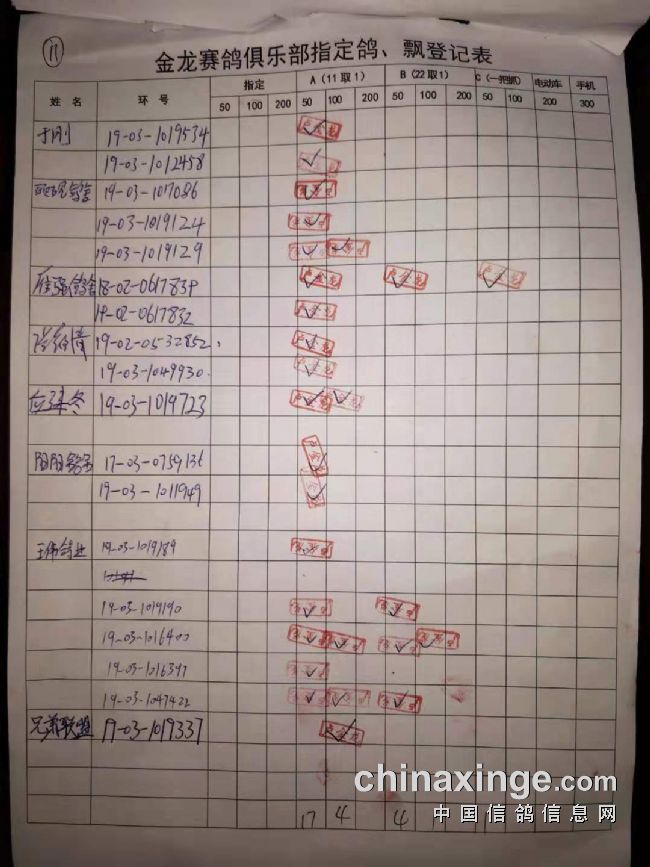 11
金龙赛鸽俱乐部指定鸽、飘登记表
姓 名 环 号 指定 A (11取1) B (22取1) C (一把抓) 电动车 手机
50 100 200 50 100 200 50 100 200 50 100 200 300
于刚 19-03-1019534
19-03-1012458
19-03-1017086
19-03-1019124
19-03-1019129
18-02-0617839
19-02-0617832
19-02-0532852
19-03-1049930
19-03-1019723
阳阳鸽舍 17-03-0759136
19-03-1011949
王伟鸽业 19-03-1019189
19-03-1019190
19-03-1016400
19-03-1016397
19-03-1047422
兄弟联盟 19-03-1019337
17 4 4 1 1
chinaxinge.com
中国信鸽信息网